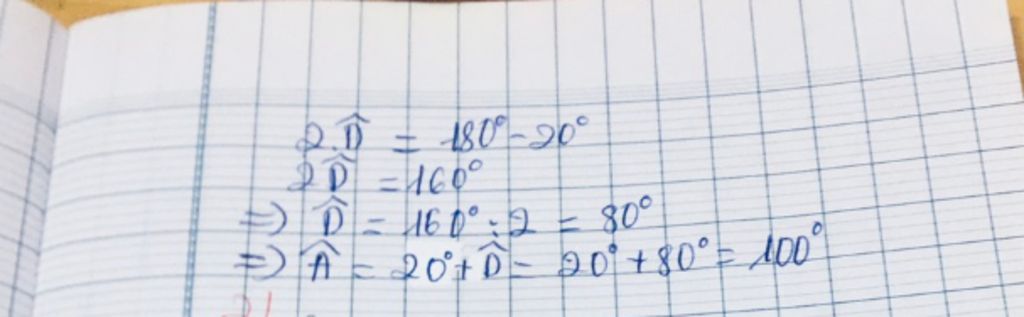 2.D̂ = 180° - 20°
2D̂ = 160°
=> D̂ = 160° : 2 = 80°
=> Â = 20° + D̂ = 20° + 80° = 100°